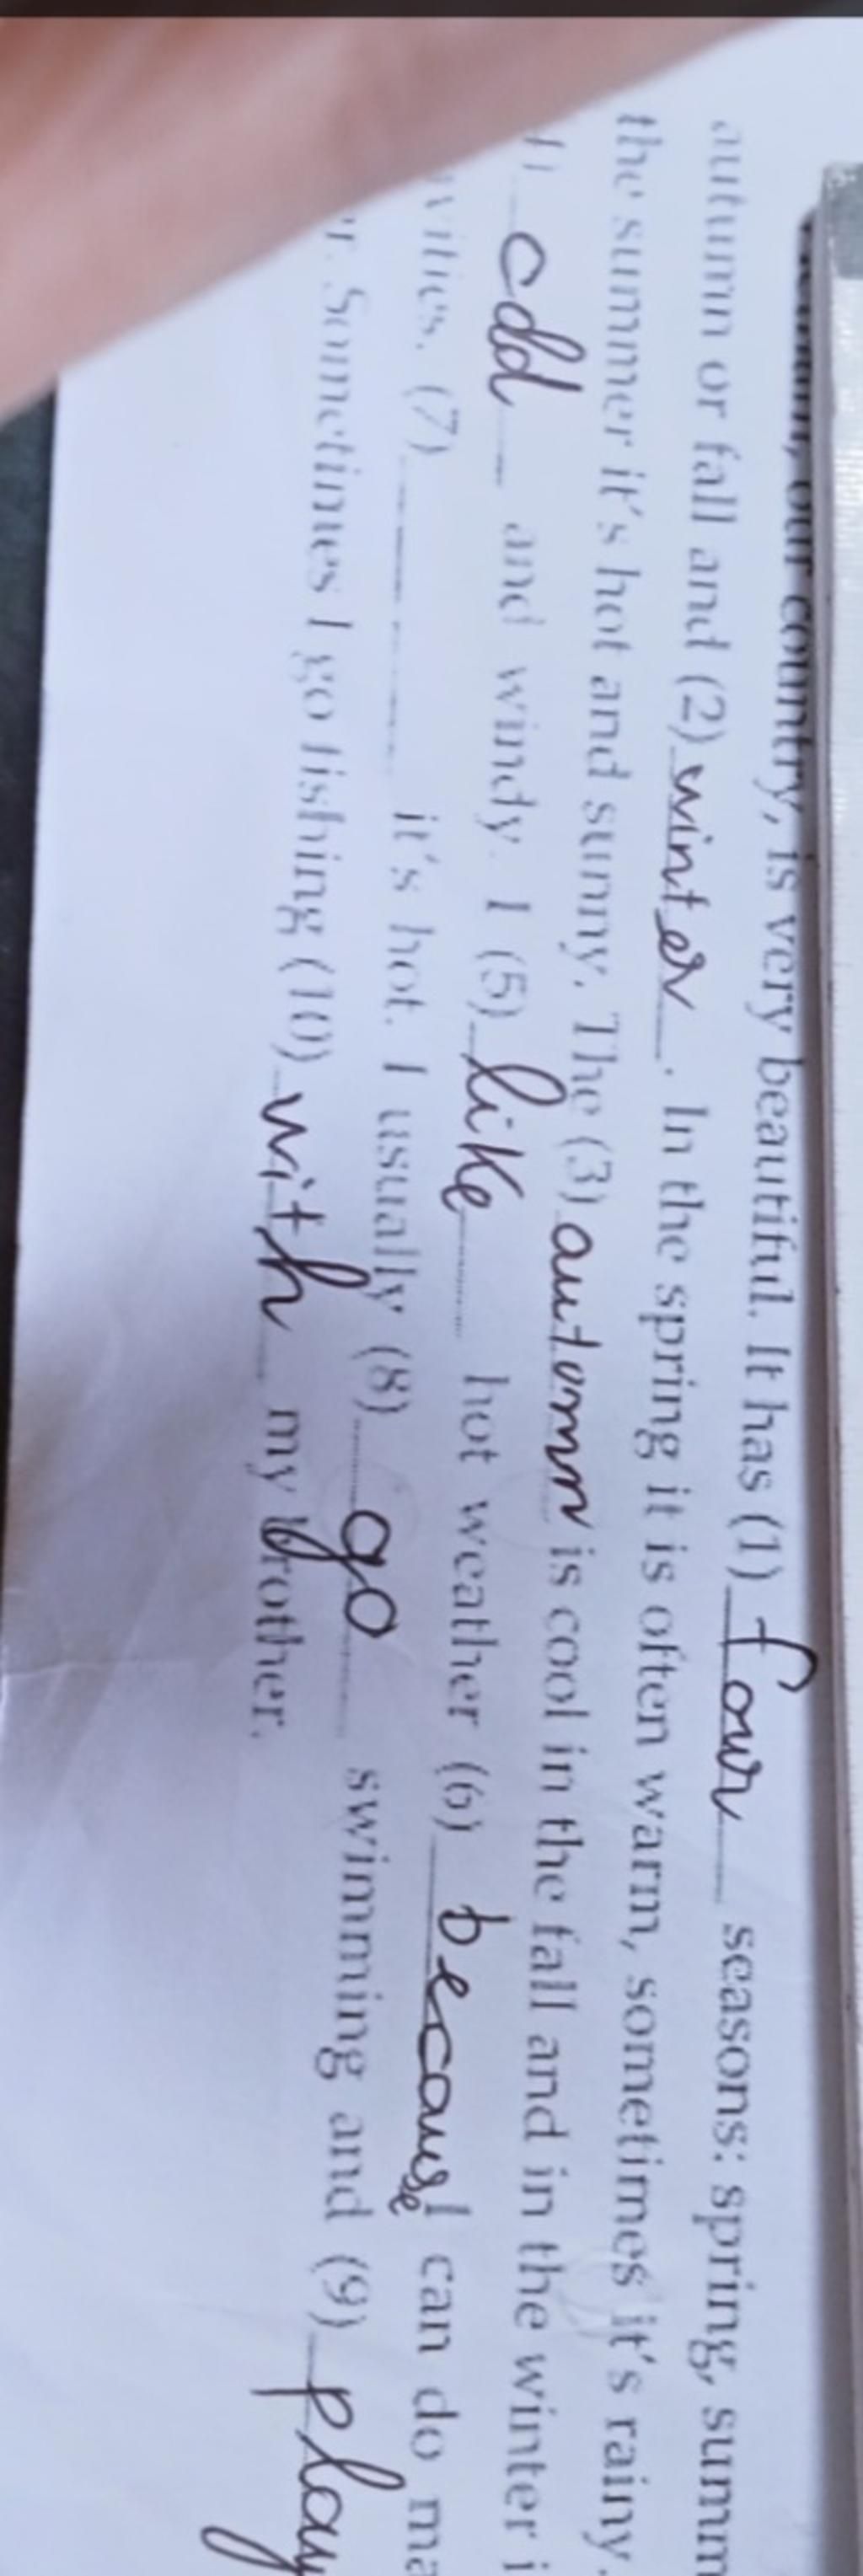 our country, is very beautiful. It has (1) four seasons: spring, summ
autumn or fall and (2) winter. In the spring it is often warm, sometimes it's rainy.
the summer it's hot and sunny. The (3) automn is cool in the fall and in the winter i
cold and windy. I (5) like hot weather (6) because I can do ma
vities. (7) it's hot. I usually (8) go swimming and (9) play
r. Sometimes I go fishing (10) with my brother.